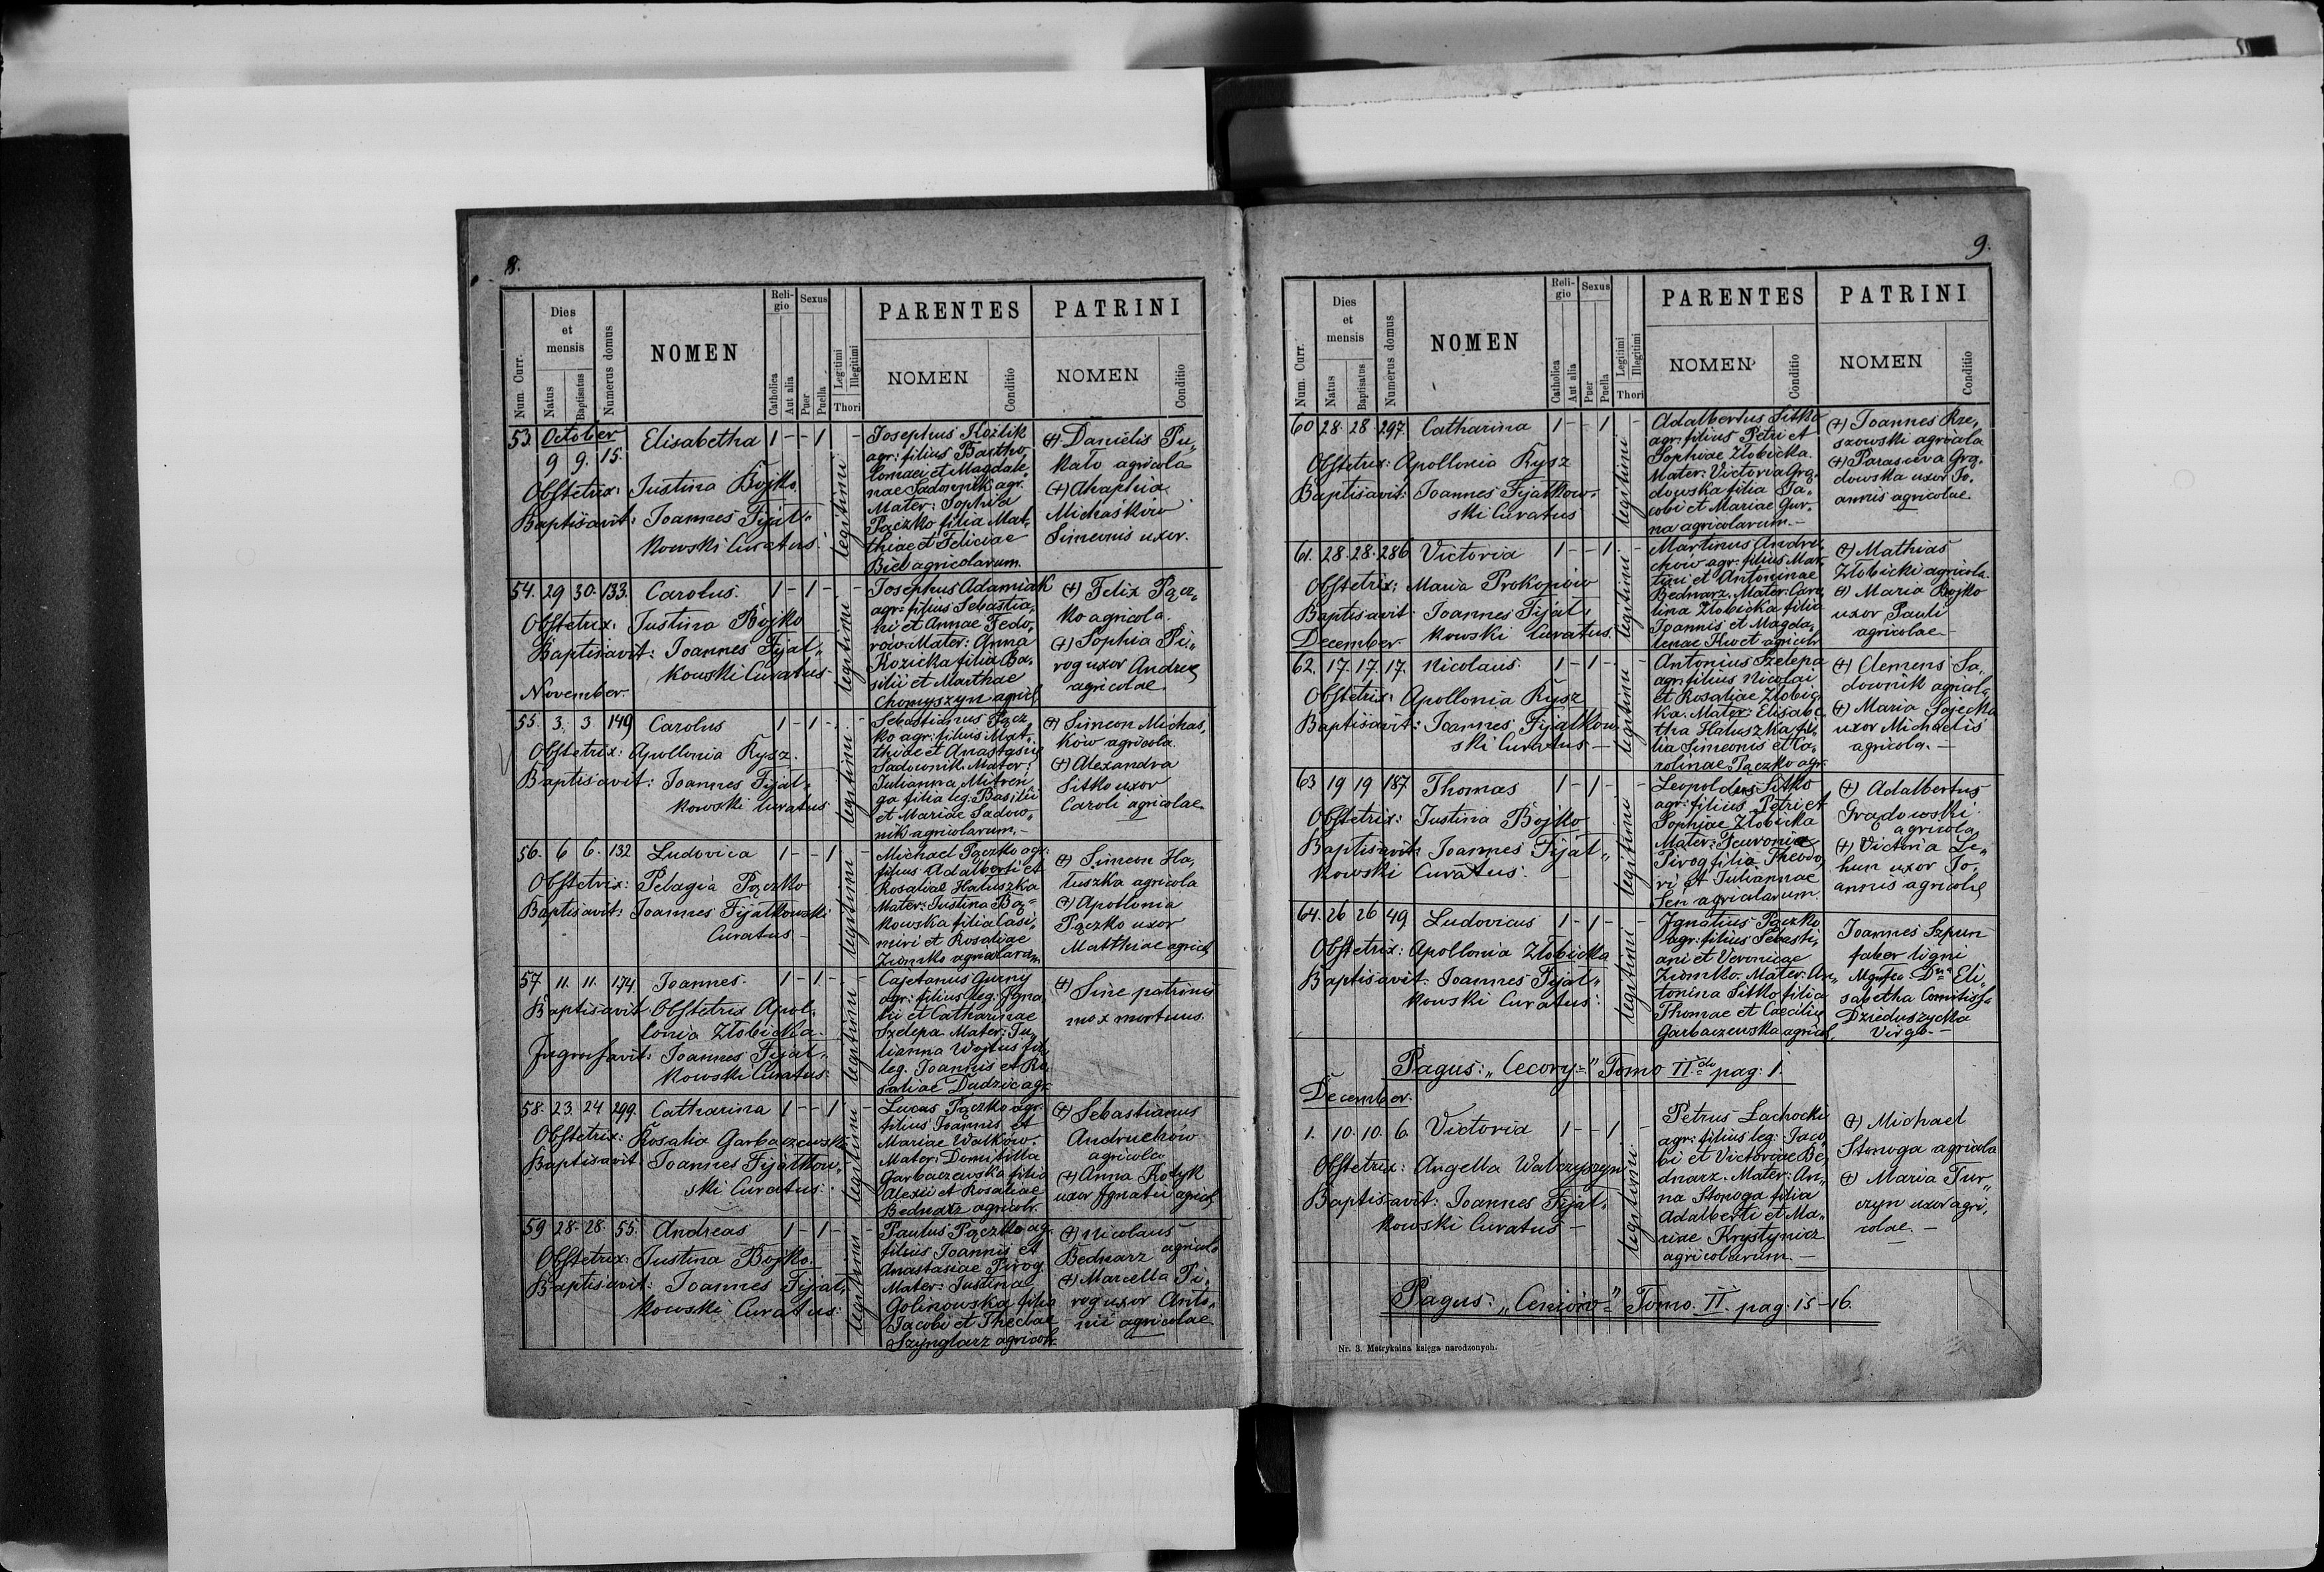 8.
Num. Curr.
Dies et mensis
Natus
Baptisatus
Numerus domus
NOMEN
Religio
Catholica
Aut alia
Sexus
Puer
Puella
Legitimi
Illegitimi
Thori
PARENTES
NOMEN
Conditio
PATRINI
NOMEN
Conditio
53. October
9 9. 15. Elisabetha 1 - - 1 -
Obstetrix: Justina Bojko
Baptisavit: Joannes Fijał„
kowski Curatus.
legitimi
Josephus Koźlik
agr: filius Bartho„
lomaei et Magdale„
nae Sadownik agr.
Mater: Sophia
Pączko filia Mat„
thiae et Feliciae
Biel agricolarum.
(+) Danielis Pu„
kało agricola
(+) Ahaphia
Michasków
Simeonis uxor.
54. 29 30. 133. Carolus. 1 - 1 - -
Obstetrix: Justina Bojko
Baptisavit: Joannes Fijał„
kowski Curatus -
November.
legitimi
Josephus Adamiak
agr: filius Sebastia„
ni et Annae Fedo„
rów. Mater: Anna
Kozicka filia Ba„
silii et Marthae
Chomyszyn agricol.
(+) Felix Pącz„
ko agricola.
(+) Sophia Pi„
rog uxor Andreae
agricolae.
55. 3. 3. 149 Carolus 1 - 1 - -
Obstetrix: Apollonia Kysz.
Baptisavit: Joannes Fijał„
kowski Curatus
legitimi
Sebastianus Pącz„
ko agr: filius Mat„
thiae et Anastasiae
Sadownik. Mater:
Julianna Mitren„
ga filia leg. Basilii
et Mariae Sadow„
nik agricolarum. -
(+) Simeon Michas„
ków agricola.
(+) Alexandra
Sitko uxor
Caroli agricolae
56. 6 6. 132 Ludovica 1 - - 1 -
Obstetrix: Pelagia Pączko
Baptisavit: Joannes Fijałkowski
Curatus -
legitimi
Michael Pączko agr:
filius Adalberti et
Rosaliae Hałuszka
Mater: Justina Bąz=
kowska filia Casi„
miri et Rosaliae
Ziomko agricolarum
(+) Simeon Ha„
łuszka agricola
(+) Apollonia
Pączko uxor
Matthiae agricol.
57. 11. 11. 174. Joannes. 1 - 1 - -
Baptisavit Obstetrix Apol„
lonia Złobicka.
Ingrossavit: Joannes Fijał„
kowski Curatus:
legitimi
Cajetanus Gurny
agr: filius leg: Igna„
tii et Catharinae
Szelepa. Mater: Ju„
lianna Wojtus fil.
leg. Joannis et Ro„
saliae Dudzic agr.
(+) Sine patrinis
mox mortuus.
58. 23. 24 299. Catharina 1 - - 1 -
Obstetrix: Rosalia Garbaczewska
Baptisavit: Joannes Fijałkow„
ski Curatus:
legitimi
Lucas Pączko agr.
filius Joannis et
Mariae Wałków.
Mater: Domitilla
Garbaczewska filia
Alexii et Rosaliae
Bednarz agricol.
(+) Sebastianus
Andruchów
agricola
(+) Anna Kotyk
uxor Ignatii agricol.
59 28. 28. 55. Andreas 1 - 1 - -
Obstetrix: Justina Bojko.
Baptisavit: Joannes Fijał„
kowski Curatus:
legitimi
Paulus Pączko ag:
filius Joannis et
Anastasiae Pirog.
Mater: Justina
Golinowska filia
Jacobi et Theclae
Szynglarz agricol.
(+) Nicolaus
Bednarz agricol.
(+) Marcella Pi„
rog uxor Anto„
nii agricolae
9.
Num. Curr.
Dies et mensis
Natus
Baptisatus
Numerus domus
NOMEN
Religio
Catholica
Aut alia
Sexus
Puer
Puella
Legitimi
Illegitimi
Thori
PARENTES
NOMEN
Conditio
PATRINI
NOMEN
Conditio
60 28. 28. 297. Catharina 1 - - 1 -
Obstetrix: Apollonia Kysz
Baptisavit: Joannes Fijałkow„
ski Curatus
legitimi
Adalbertus Sitko
agr: filius Petri et
Sophiae Złobicka.
Mater: Victoria Grą„
dowska filia Ja„
cobi et Mariae Gur„
na agricolarum. -
(+) Joannes Rze„
szowski agricola
(+) Parasceva Grą„
dowska uxor Jo„
annis agricolae.
61. 28. 28. 286 Victoria 1 - - 1 -
Obstetrix: Maria Prokopiów
Baptisavit: Joannes Fijał„
kowski Curatus.
December.
legitimi
Martinus Andru„
chów agr: filius Mar„
tini et Antoninae
Bednarz. Mater: Caro„
lina Złobicka filia
Joannis et Magda„
lenae agricolr
(+) Mathias
Złobicki agricola.
(+) Maria Bojko
uxor Pauli
agricolae -
62. 17. 17. 17. Nicolaus. 1 - 1 - -
Obstetrix: Apollonia Kysz
Baptisavit: Joannes Fijałkow„
ski Curatus -
legitimi
Antonius Szelepa
agr: filius Nicolai
et Rosaliae Złobic„
ka. Mater: Elisabe„
tha Hałuszka fi„
lia Simeonis et Ca„
rolinae Pączko agr.
(+) Clemens Sa„
downik agricola„
(+) Maria Sajecka
uxor Michaelis
agricola. -
63 19 19 187. Thomas 1 - 1 - -
Obstetrix: Justina Bojko
Baptisavit: Joannes Fijał„
kowski Curatus. -
legitimi
Leopoldus Sitko
agr: filius Petri et
Sophiae Złobicka
Mater: Fevronia
Pirog filia Theodo„
ri et Juliannae
Sen agricolarum.
(+) Adalbertus
Grądowski
agricola
(+) Victoria Le„
hun uxor Jo„
annis agricolae
64. 26 26 49 Ludovicus 1 - 1 - -
Obstetrix: Apollonia Złobicka
Baptisavit: Joannes Fijał„
kowski Curatus:
legitimi
Ignatius Pączko
agr: filius Sebasti„
ani et Veronicae
Ziomko. Mater: An„
tonina Sitko filia
Thomae et Caeciliae
Garbaczewska agricol.
Joannes Szpun
faber ligni
Dna Eli„
sabetha Comitissa
Dzieduszycka
Virgo. -
Pagus: „Cecory=" Tomo IIdo pag: 1.
December.
1. 10. 10. 6. Victoria 1 - - 1 -
Obstetrix: Angella Walczyszyn
Baptisavit: Joannes Fijał„
kowski Curatus -
legitimi
Petrus Łachocki
agr: filius leg: Jaco„
bi et Victoriae Be„
dnarz. Mater: An„
na Stonoga filia
Adalberti et Ma„
riae Krystynicz
agricolarum. -
(+) Michael
Stonoga agricola
(+) Maria Tur„
czyn uxor agri„
colae. -
Pagus: „Ceniów=" Tomo. II. pag: 15-16.
Nr. 3. Metrykalna księga narodzonych.